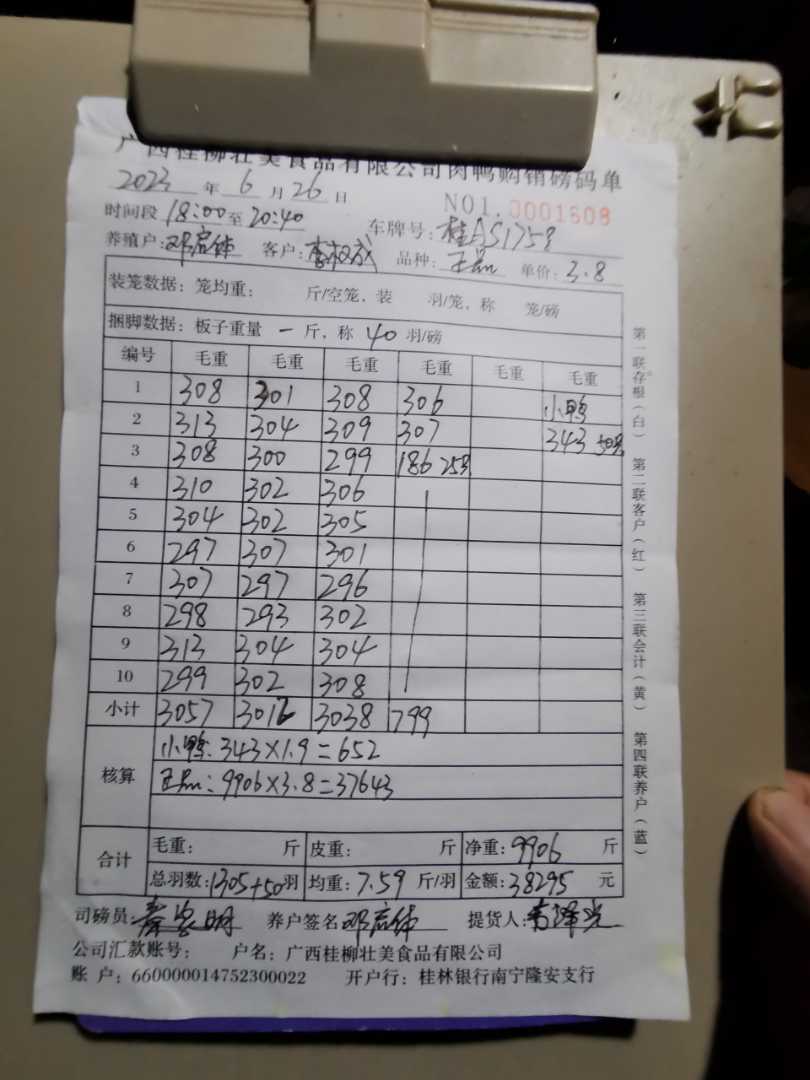 广西桂柳壮美食品有限公司肉鸭购销磅码单
2023 年 6 月 26 日 NO1. 0001608
时间段 18:00 至 20:40 车牌号: 桂AS1758
养殖户: 邓启体 客户: 李权成 品种: 正品 单价: 3.8
装笼数据: 笼均重: 斤/空笼, 装 羽/笼, 称 笼/磅
捆脚数据: 板子重量 一 斤, 称 40 羽/磅
编号 毛重 毛重 毛重 毛重 毛重 毛重
1 308 301 308 306 小鸭
2 313 304 309 307 343 50羽
3 308 300 299 186 25羽
4 310 302 306
5 304 302 305
6 297 307 301
7 307 297 296
8 298 293 302
9 313 304 304
10 299 302 308
小计 3057 3012 3038 799
核算 小鸭: 343×1.9=652
正品: 9906×3.8=37643
合计 毛重: 斤 皮重: 斤 净重: 9906 斤
总羽数: 1305+50 羽 均重: 7.59 斤/羽 金额: 38295 元
司磅员 养户签名 邓启体 提货人:
公司汇款账号: 户名: 广西桂柳壮美食品有限公司
账 户: 660000014752300022 开户行: 桂林银行南宁隆安支行
第一联存根(白) 第二联客户(红) 第三联会计(黄) 第四联养户(蓝)